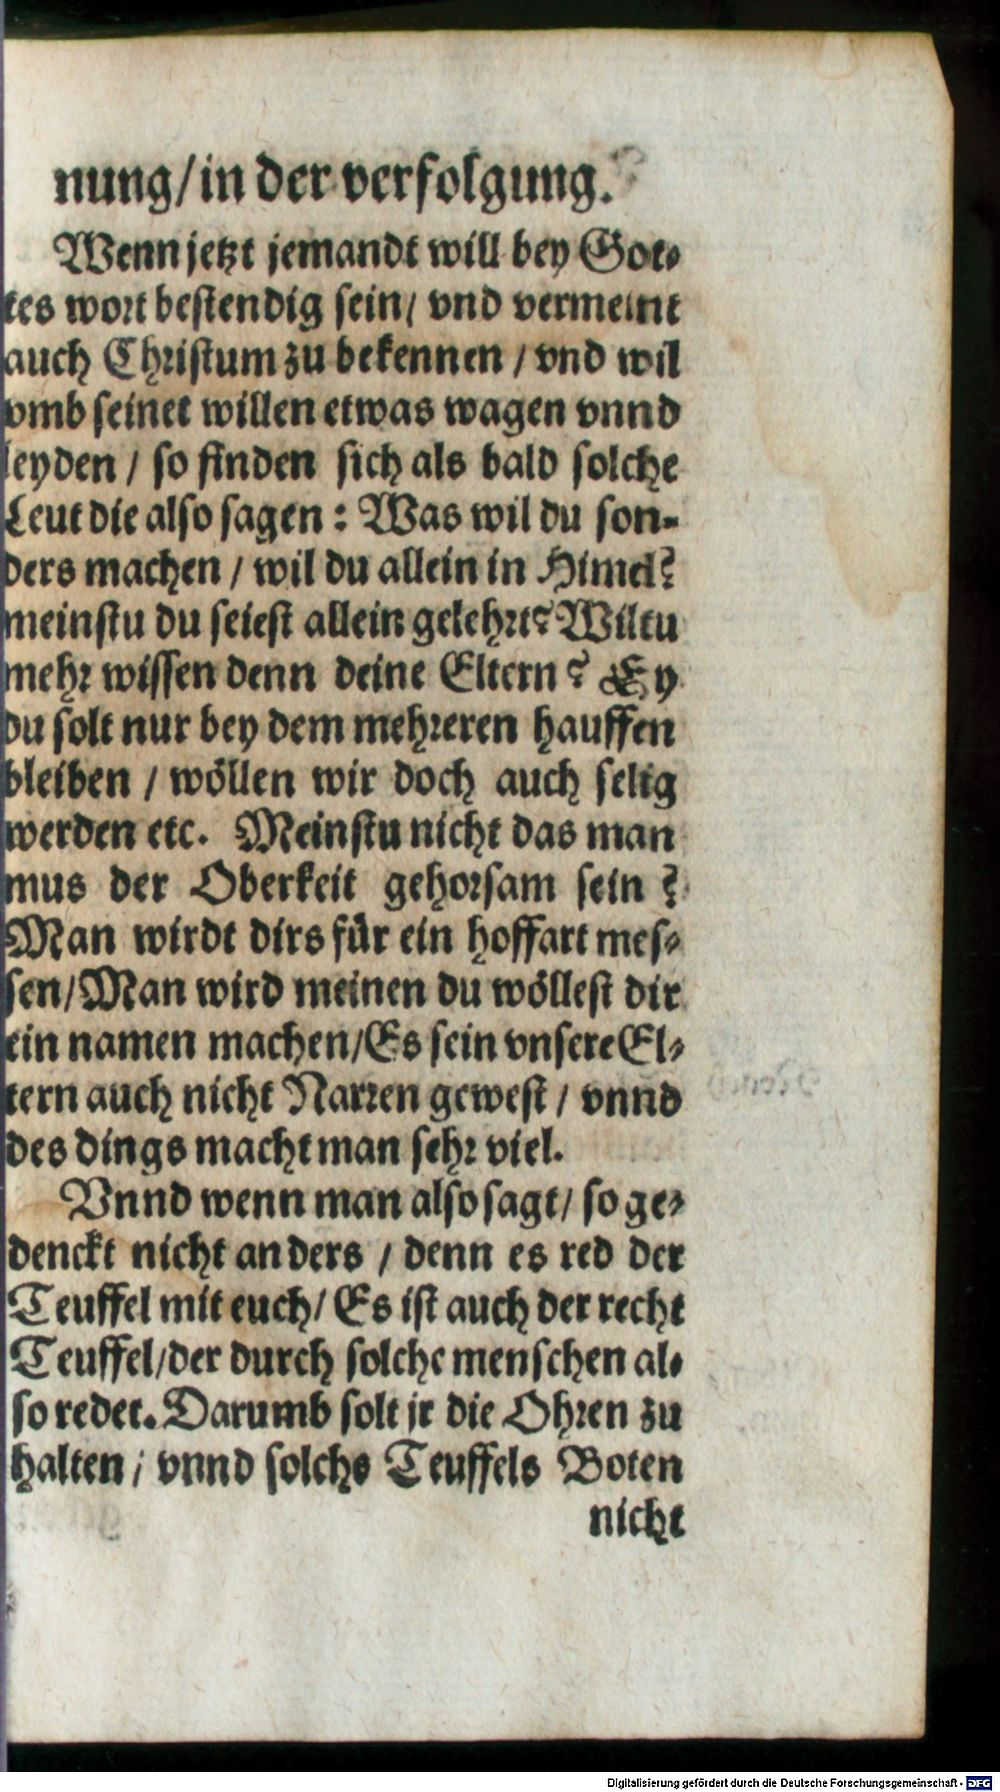 nung/in der verfolgung.
Wenn jetzt jemandt will bey Got-
tes wort bestendig sein/ vnd vermeint
auch Christum zu bekennen / vnd wil
vmb seinet willen etwas wagen vnnd
leyden / so finden sich als bald solche
Leut die also sagen : Was wil du son-
ders machen / wil du allein in Himel?
meinstu du seiest allein gelehrt? Wiltu
mehr wissen denn deine Eltern ? Ey
du solt nur bey dem mehreren hauffen
bleiben / wöllen wir doch auch selig
werden etc. Meinstu nicht das man
mus der Oberkeit gehorsam sein ?
Man wirdt dirs für ein hoffart mes-
sen/Man wird meinen du wöllest dir
ein namen machen/Es sein vnsere El-
tern auch nicht Narren gewest / vnnd
des dings macht man sehr viel.
Vnnd wenn man also sagt/ so ge-
denckt nicht anders / denn es red der
Teuffel mit euch/ Es ist auch der recht
Teuffel/der durch solche menschen al-
so redet. Darumb solt jr die Ohren zu
halten / vnnd solchs Teuffels Boten
nicht
Digitalisierung gefördert durch die Deutsche Forschungsgemeinschaft - DFG